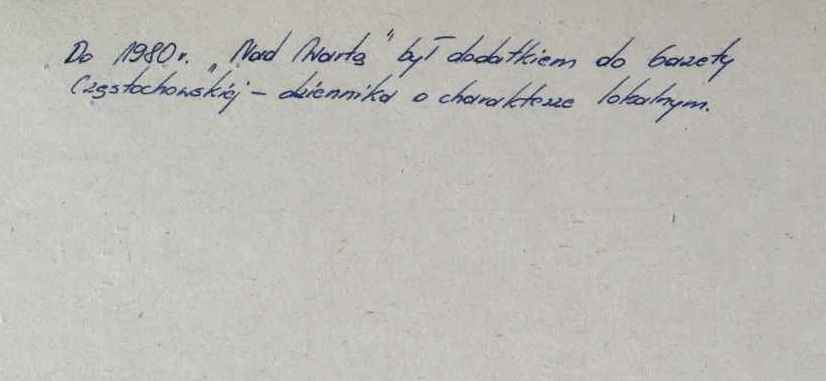 Do 1980r. „Nad Wartą" był dodatkiem do Gazety
Częstochowskiej – dziennika o charakterze lokalnym.